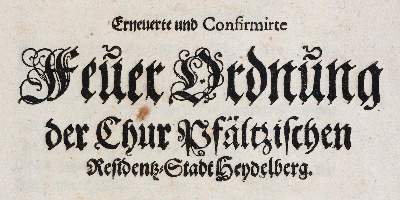 Erneuerte und Confirmirte
Feůer Ordnůng
der Chur Pfältzischen
Residentz-Stadt Heydelberg.